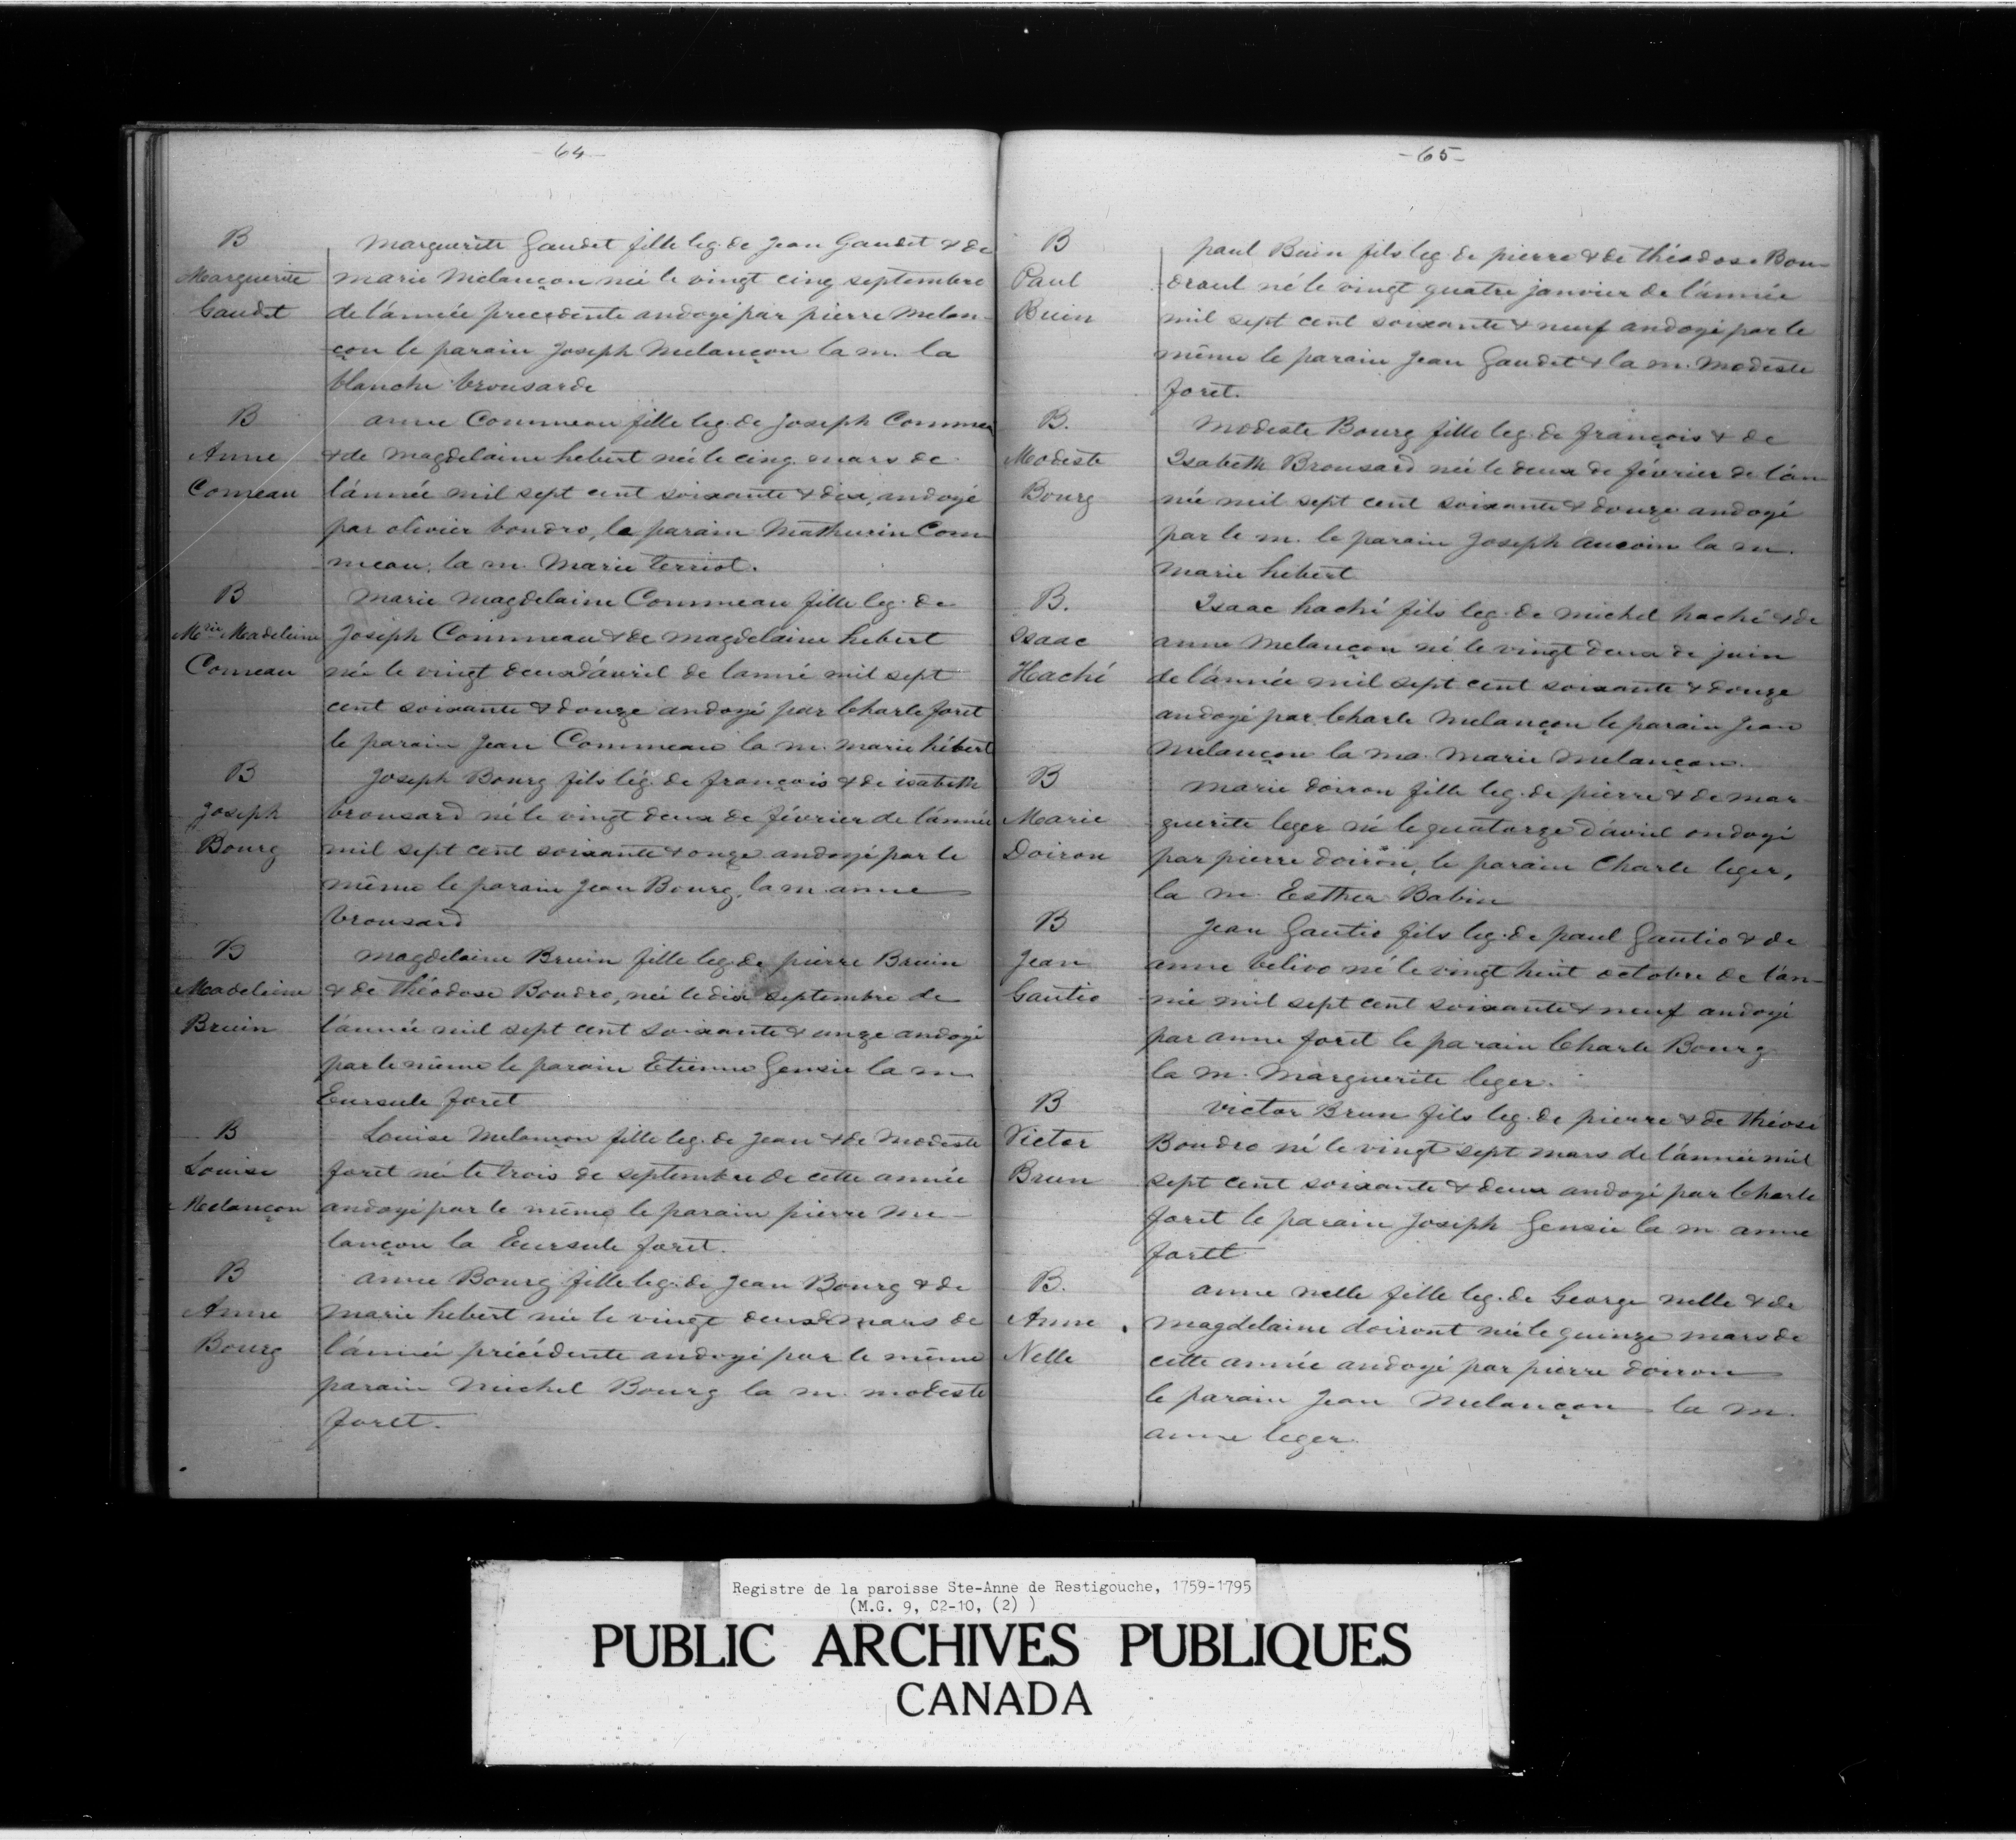 - 64 -
B
Marguerite
Gaudet
Marguerite Gaudet fille leg. de Jean Gaudet & de
marie Melançon née le vingt cinq septembre
de l'année precedente andoyé par pierre Melan-
çon le parain Joseph Melançon la m. la
blanche brousarde
B
Anne
Comeau
anne Commeau fille leg. de Joseph Commea
& de Magdelaine hebert née le cinq mars de
l'année mil sept cent soixante & dix, andoyé
par olivier boudro, le parain Mathurin Com
meau, la m. Marie terriot.
B
Mrie Madeleine
Comeau
Marie Magdelaine Commeau fille leg. de
Joseph Commeau & de Magdelaine hebert
née le vingt deux d'avril de lanné mil sept
cent soixante & douze andoyé par Charle foret
le parain Jean Commeau la m. marie hébert
B
Joseph
Bourg
Joseph Bourg fils lég. de françois & de isabeth
brousard né le vingt deux de février de l'année
mil sept cent soixante & onze andoyé par le
même le parain Jean Bourg, la m anne
brousard
B
Madeleine
Bruin
Magdelaine Bruin fille leg. de pierre Bruin
& de théodose Boudro, née le dix septembre de
l'année mil sept cent soixante & unze andoyé
par le même le parain Etienne Gensie la m
Eursule foret
B
Louise
Melançon
Louise Melançon fille leg. de Jean & de Modeste
foret née le trois de septembre de cette année
andoyé par le même le parain pierre Me-
lançon la Eursule foret.
B
Anne
Bourg
anne Bourg fille leg. de Jean Bourg & de
marie hebert née le vingt deux mars de
l'année précédente andoyé par le même
parain Michel Bourg la m. modeste
foret.
- 65 -
B
Paul
Buin
paul Buin fils leg. de pierre & de théodose Bou-
draul né le vingt quatre janvier de l'année
mil sept cent soixante & neuf andoyé par le
même le parain Jean Gaudet & la m. Modeste
foret.
B.
Modeste
Bourg
Modeste Bourg fille leg. de françois & de
Isabeth Brousard née le deux de février de l'an-
née mil sept cent soixante & douze andoyé
par le m. le parain Joseph aucoin la m.
Marie hebert
B.
Isaac
Haché
Isaac haché fils leg. de michel haché & de
anne Melançon né le vingt deux de juin
de l'année mil sept cent soixante & douze
andoyé par Charle Melançon le parain Jean
Melançon la ma. Marie Melançon.
B
Marie
Doiron
Marie doiron fille leg. de pierre & de mar-
guerite leger né le quatorze d'avril ondoyé
par pierre doiron, le parain Charle leger,
la m. Esther Babin
B
Jean
Gautio
Jean Gautio fils leg. de paul Gautio & de
anne belivo né le vingt huit octobre de l'an-
née mil sept cent soixante & neuf andoyé
par anne foret le parain Charle Bourg
la m. Marguerite leger.
B
Victor
Brun
Victor Brun fils leg. de pierre & de théose
Boudro né le vingt sept mars de l'année mil
sept cent soixante & deux andoyé par Charle
foret le parain Joseph Gensie la m anne
foret
B.
Anne
Nelle
anne nelle fille leg. de George nelle & de
Magdelaine doiront née le quinze mars de
cette année andoyé par pierre doiron
le parain Jean Melançon la m.
anne leger.
Registre de la paroisse Ste-Anne de Restigouche, 1759-1795
(M.G. 9, C2-10, (2) )
PUBLIC ARCHIVES PUBLIQUES
CANADA